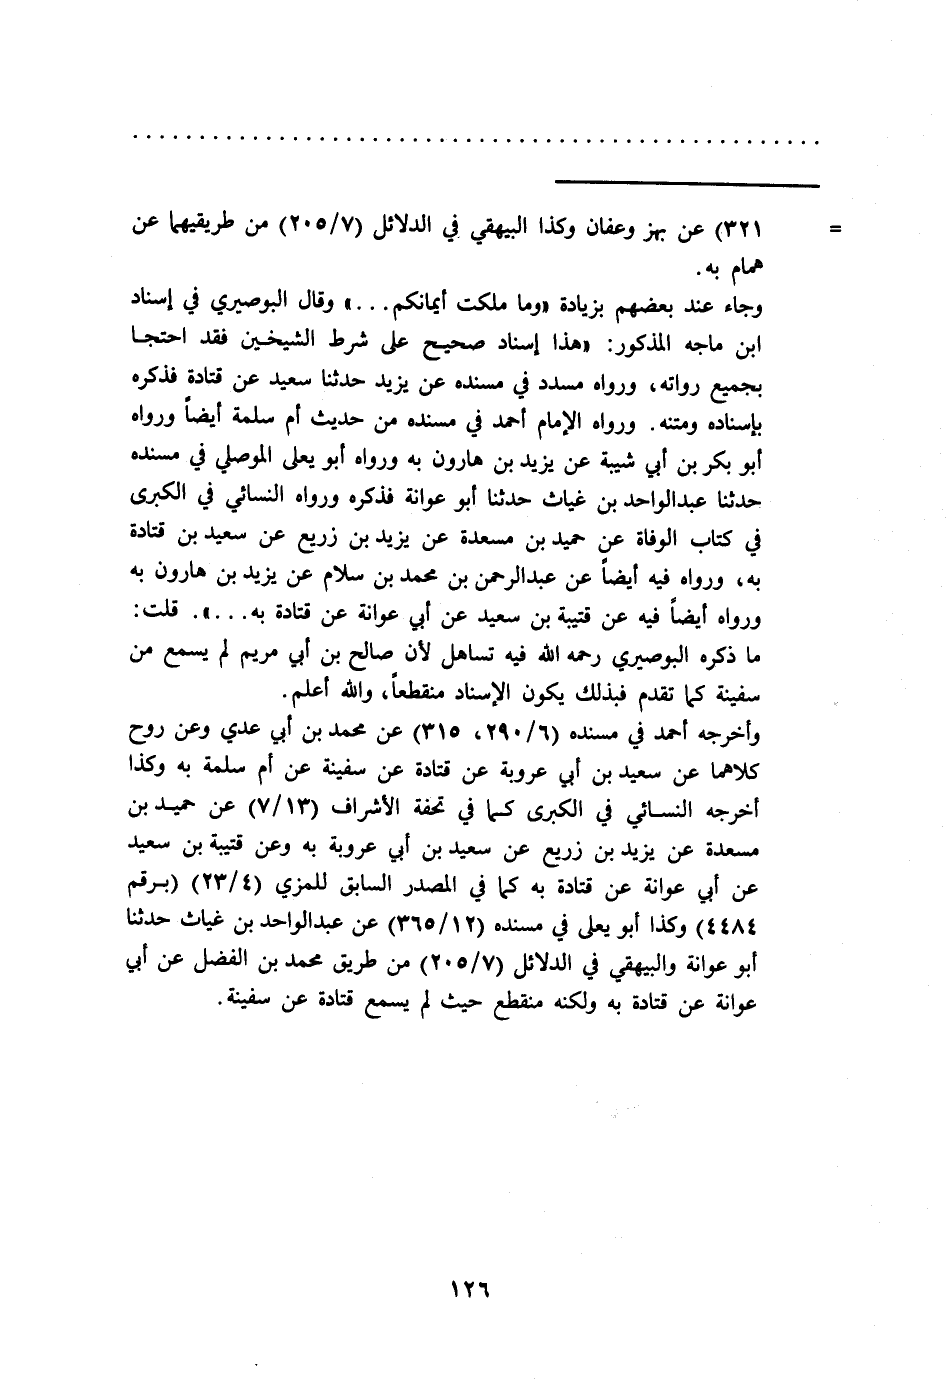 . . . . . . . . . . . . . . . . . . . . . . . . . . . . . . . . . . . . . . . . . . . . . . . . . . . .
= ٣٢١) عن بهز وعفان وكذا البيهقي في الدلائل (٢٠٥/٧) من طريقيهما عن
همام به.
وجاء عند بعضهم بزيادة «وما ملكت أيمانكم...» وقال البوصيري في إسناد
ابن ماجه المذكور: «هذا إسناد صحيح على شرط الشيخين فقد احتجا
بجميع رواته، ورواه مسدد في مسنده عن يزيد حدثنا سعيد عن قتادة فذكره
بإسناده ومتنه. ورواه الإمام أحمد في مسنده من حديث أم سلمة أيضاً ورواه
أبو بكر بن أبي شيبة عن يزيد بن هارون به ورواه أبو يعلى الموصلي في مسنده
حدثنا عبدالواحد بن غياث حدثنا أبو عوانة فذكره ورواه النسائي في الكبرى
في كتاب الوفاة عن حميد بن مسعدة عن يزيد بن زريع عن سعيد بن قتادة
به، ورواه فيه أيضاً عن عبدالرحمن بن محمد بن سلام عن يزيد بن هارون به
ورواه أيضاً فيه عن قتيبة بن سعيد عن أبي عوانة عن قتادة به...». قلت:
ما ذكره البوصيري رحمه الله فيه تساهل لأن صالح بن أبي مريم لم يسمع من
سفينة كما تقدم فبذلك يكون الإسناد منقطعاً، والله أعلم.
وأخرجه أحمد في مسنده (٢٩٠/٦، ٣١٥) عن محمد بن أبي عدي وعن روح
كلاهما عن سعيد بن أبي عروبة عن قتادة عن سفينة عن أم سلمة به وكذا
أخرجه النسائي في الكبرى كما في تحفة الأشراف (٧/١٣) عن حميد بن
مسعدة عن يزيد بن زريع عن سعيد بن أبي عروبة به وعن قتيبة بن سعيد
عن أبي عوانة عن قتادة به كما في المصدر السابق للمزي (٢٣/٤) (برقم
٤٤٨٤) وكذا أبو يعلى في مسنده (٣٦٥/١٢) عن عبدالواحد بن غياث حدثنا
أبو عوانة والبيهقي في الدلائل (٢٠٥/٧) من طريق محمد بن الفضل عن أبي
عوانة عن قتادة به ولكنه منقطع حيث لم يسمع قتادة عن سفينة.
١٢٦